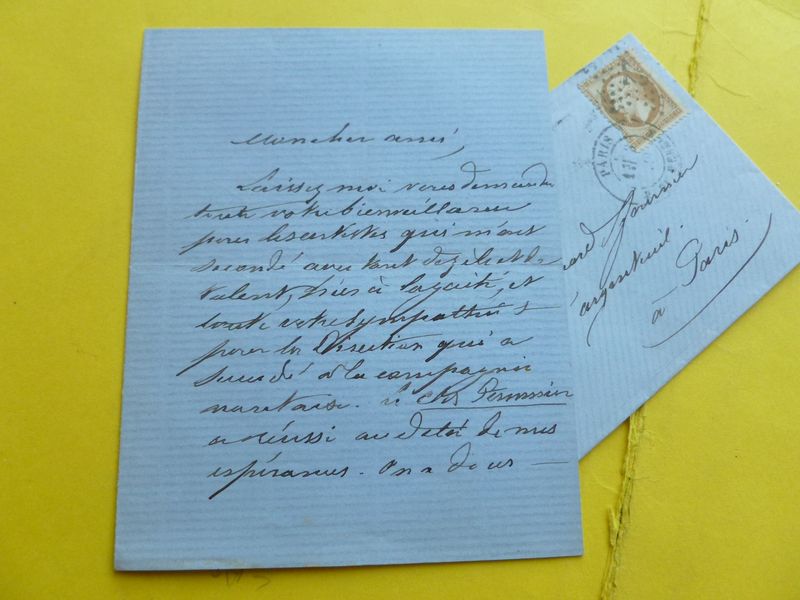 Mon cher ami,
Laissez moi vous demander
toute votre bienveillance
pour les artistes qui m'ont
secondé avec tant de zèle et de
talent, hier à la gaité, et
toute votre sympathie
pour la Direction qui a
succédé à la compagnie
nantaise. Le
a réussi au delà de mes
espérances. On a
Fournier
argenteuil.
à Paris.
PARIS